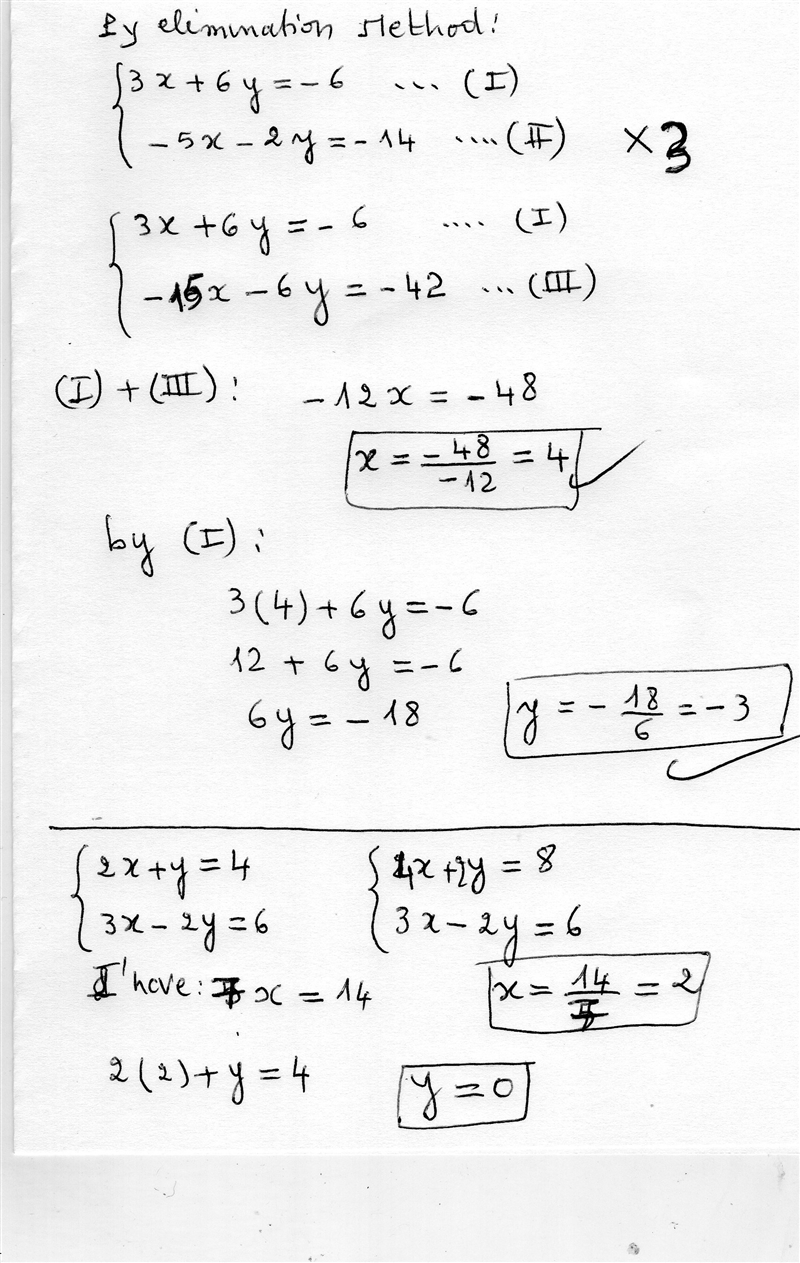 By elimination Method:
3x + 6y = - 6 ... (I)
- 5x - 2y = - 14 .... (II) × 3
3x + 6y = - 6 .... (I)
- 15x - 6y = - 42 ... (III)
(I) + (III) : - 12x = - 48
x = - 48 / - 12 = 4
by (I) :
3(4) + 6y = - 6
12 + 6y = - 6
6y = - 18 y = - 18 / 6 = - 3
2x + y = 4 4x + 2y = 8
3x - 2y = 6 3x - 2y = 6
I have: 7x = 14 x = 14 / 7 = 2
2(2) + y = 4 y = 0